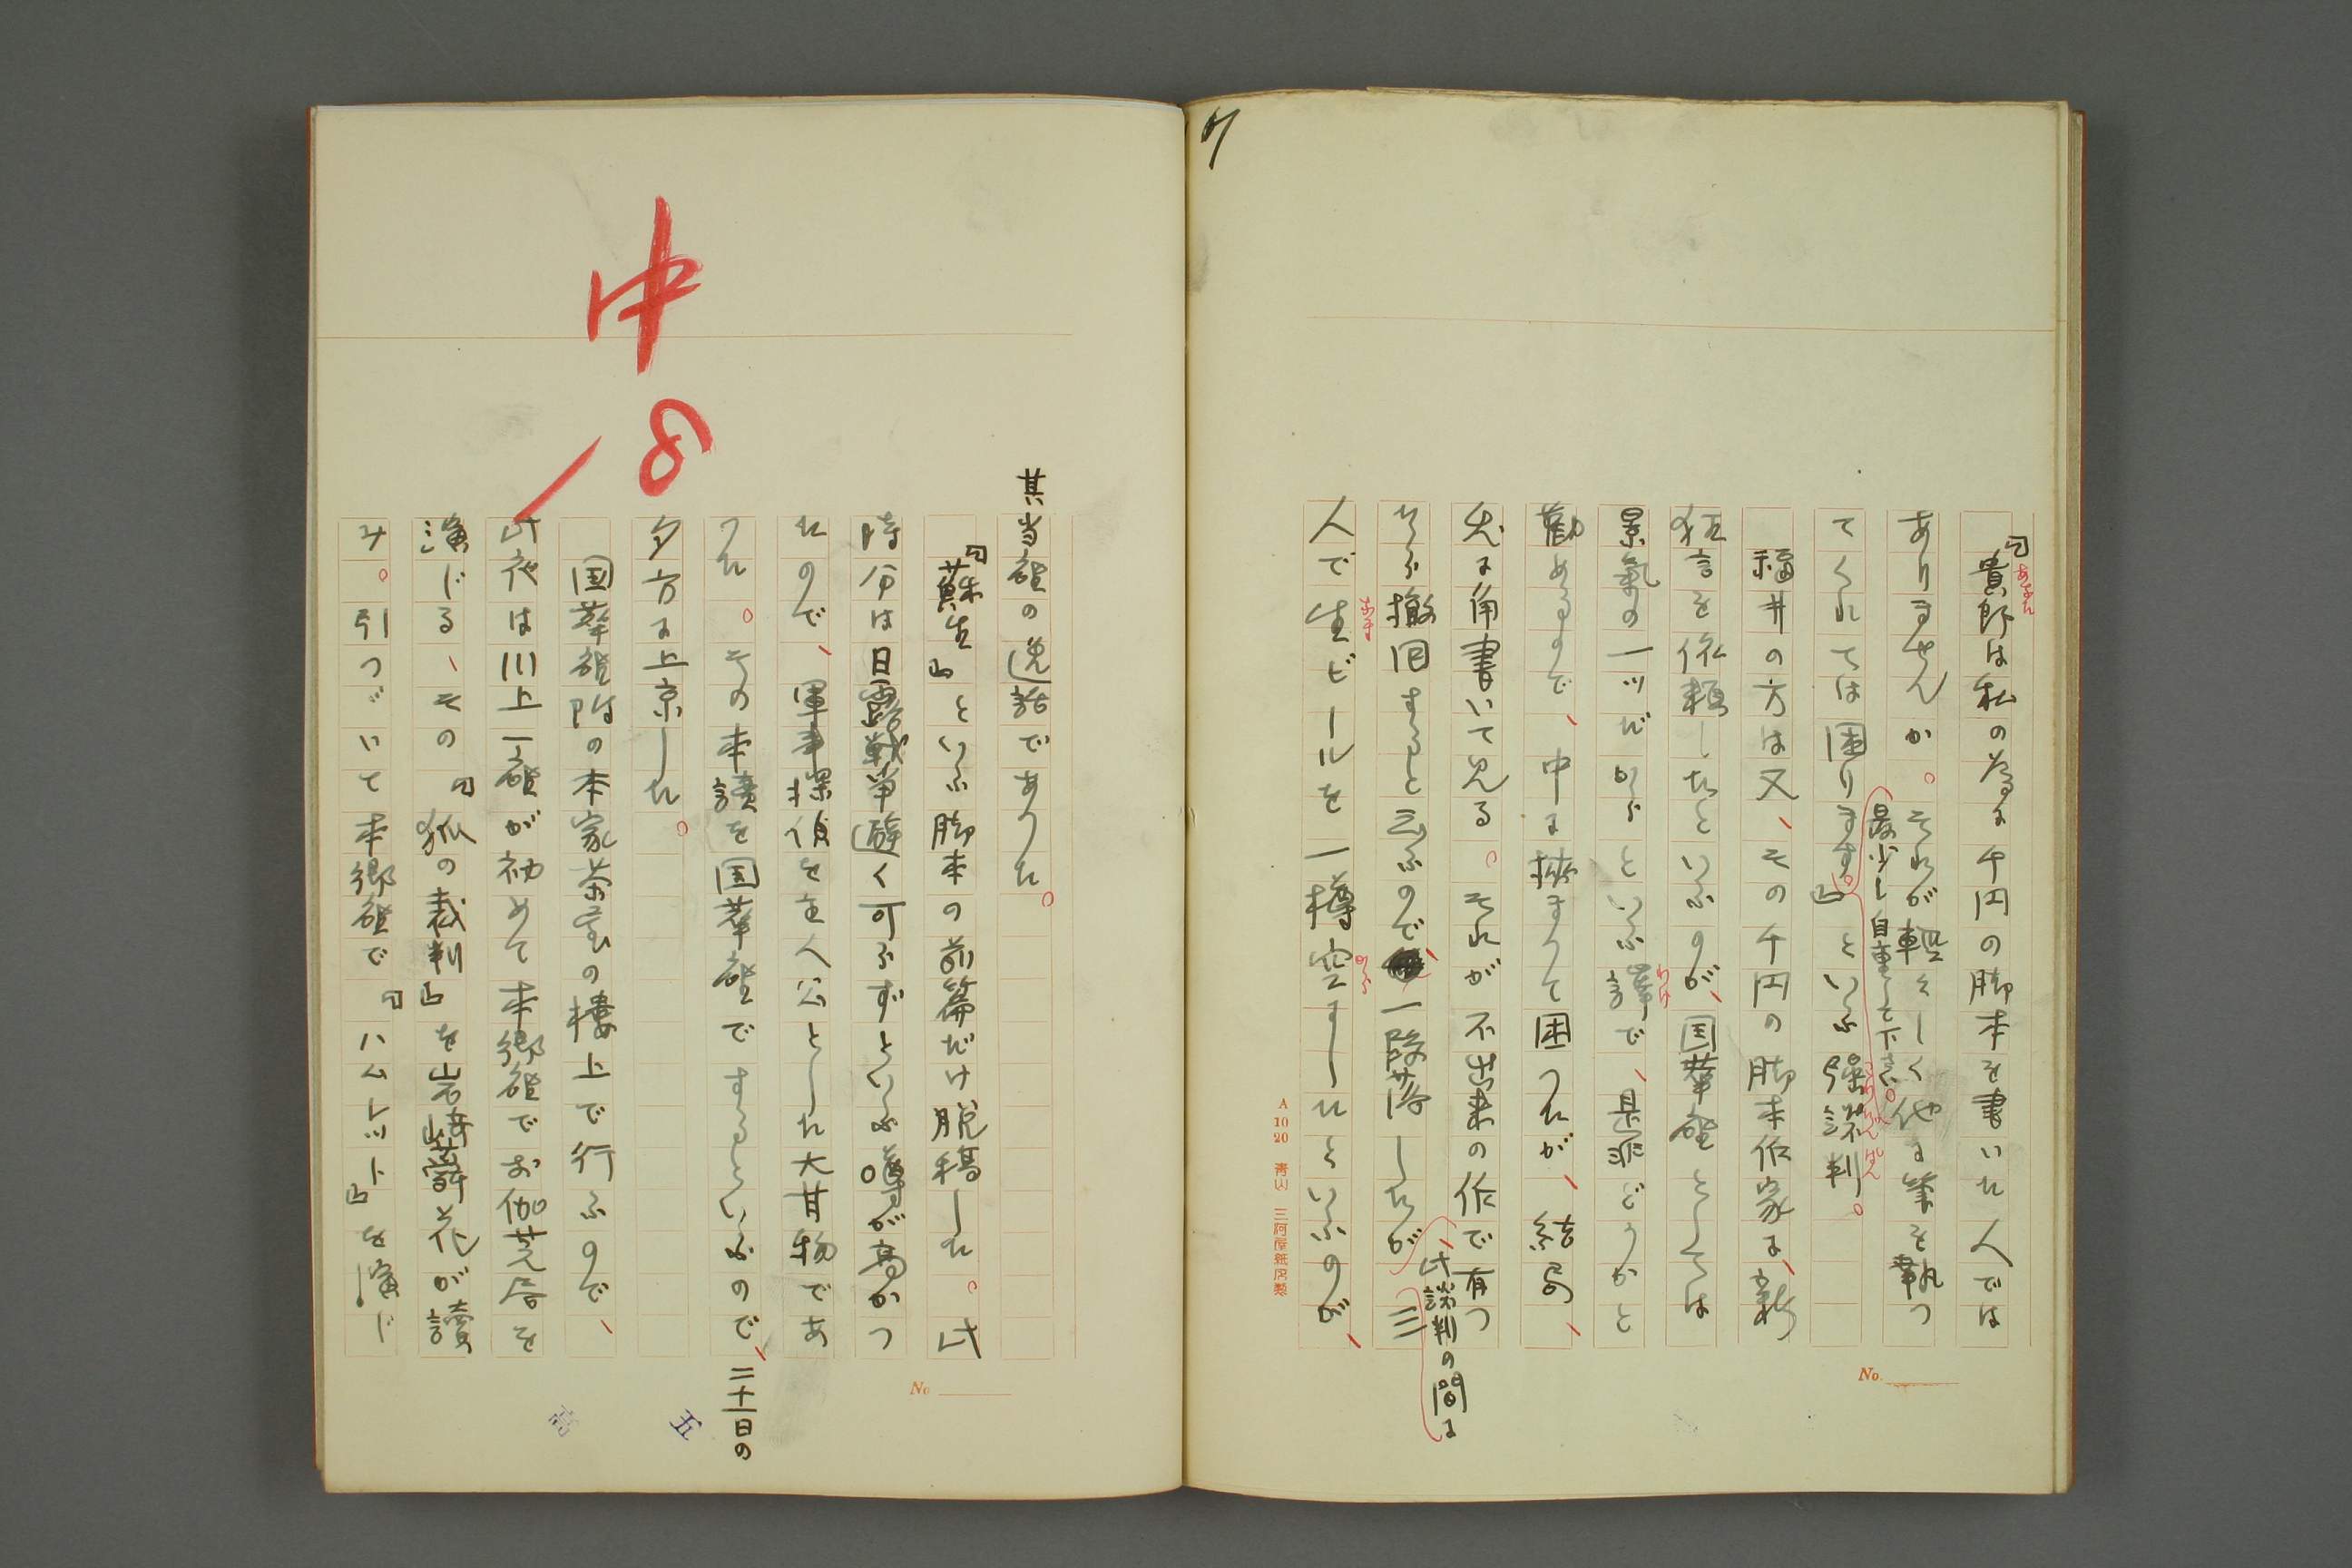 「貴郎は私の為に千円の脚本を書いた人では
あなた
ありませんか。それが軽々しく他に筆を執つ
最少し自重して下さい。
てくれては困ります。」といふ強談判。
こわだんぱん
福井の方は又、その千円の脚本作家に、新
狂言を依頼したといふのが、国華座としては
景氣の一ツだからといふ譯で、是非どうかと
わけ
勧めるので、中に挾まつて困つたが、結局、
兎に角書いて見る。それが不出来の作で有つ
たら撤回すると云ふので、一段落したが
此談判の間に
三
人で生ビールを一樽空にしたといふのが、
なま
から
A 10 20 青山 三河屋紙店製
No.
其当座の逸話でありた。
「蘇生」といふ脚本の前篇だけ脱稿した。此
時分は日露戦争避く可らずといふ噂が高かつ
たので、軍事探偵を主人公とした大甘物であ
つた。その本讀を国華座でするといふので、二十一日の
夕方に上京した。
国華座附の本家茶屋の樓上で行ふので、
此夜は川上一座が初めて本郷座でお伽芝居を
演じる、その「狐の裁判」を岩崎蕣花が讀
み。引つゞいて本郷座で「ハムレット」を演じ
No
中
8
五